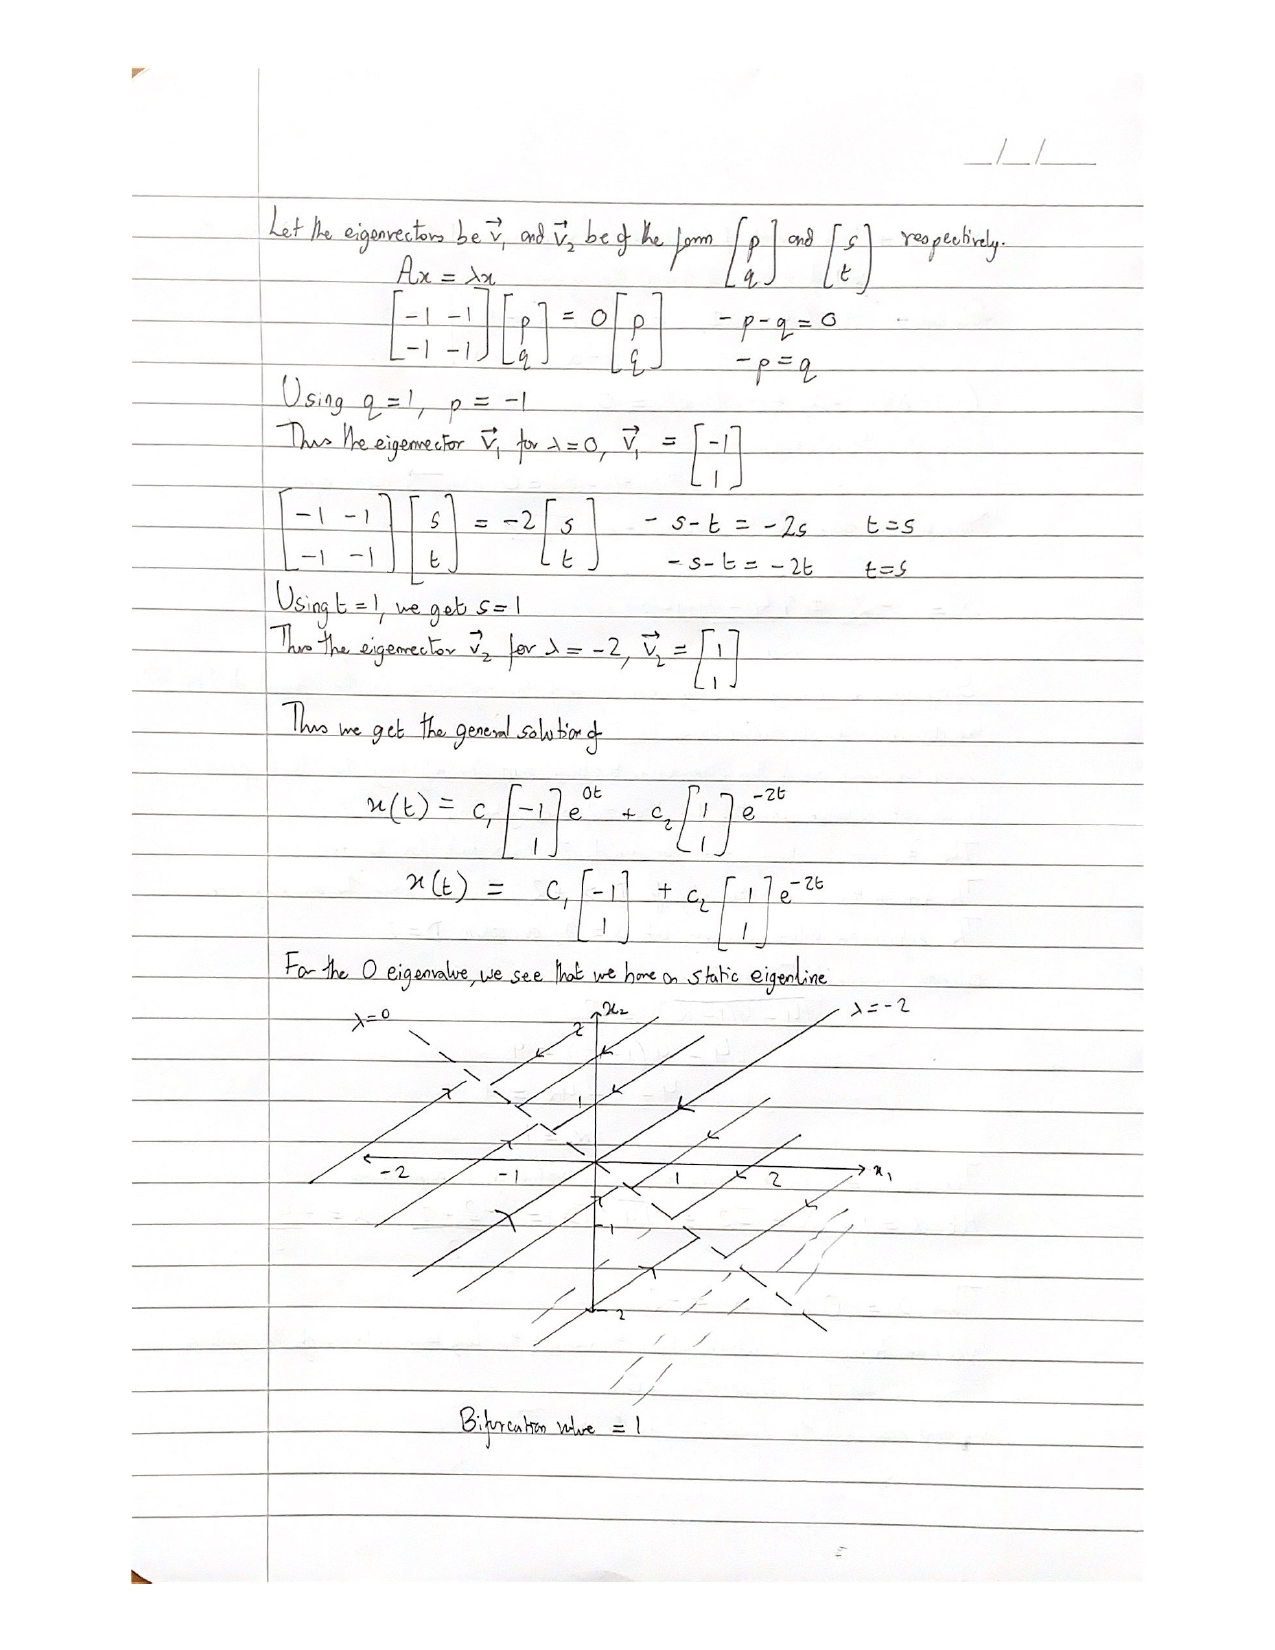 _/_/__
Let the eigenvectors be v⃗₁ and v⃗₂ be of the form [p q] and [s t] respectively.
Ax = λx
[-1 -1; -1 -1] [p; q] = 0 [p; q]    -p-q=0
-p=q
Using q=1, p = -1
Thus the eigenvector v⃗₁ for λ=0, v⃗₁ = [-1; 1]
[-1 -1; -1 -1] [s; t] = -2 [s; t]    -s-t = -2s    t=s
-s-t = -2t    t=s
Using t=1, we get s=1
Thus the eigenvector v⃗₂ for λ = -2, v⃗₂ = [1; 1]
Thus we get the general solution of
x(t) = c₁ [-1; 1] e^0t + c₂ [1; 1] e^-2t
x(t) = c₁ [-1; 1] + c₂ [1; 1] e^-2t
For the 0 eigenvalue, we see that we have a static eigenline
λ=0    x₂    λ=-2
2
1
-2    -1    1    2    x₁
-1
-2
Bifurcation value = 1